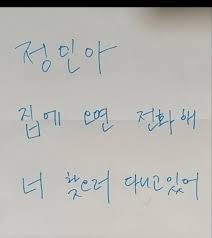 정민아
집에 오면 전화해
너 찾으러 다니고있어